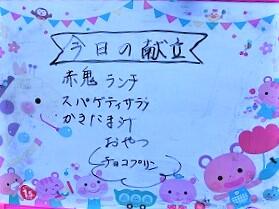 今日の献立
赤鬼ランチ
スパゲティサラダ
かきたま汁
おやつ
チョコプリン